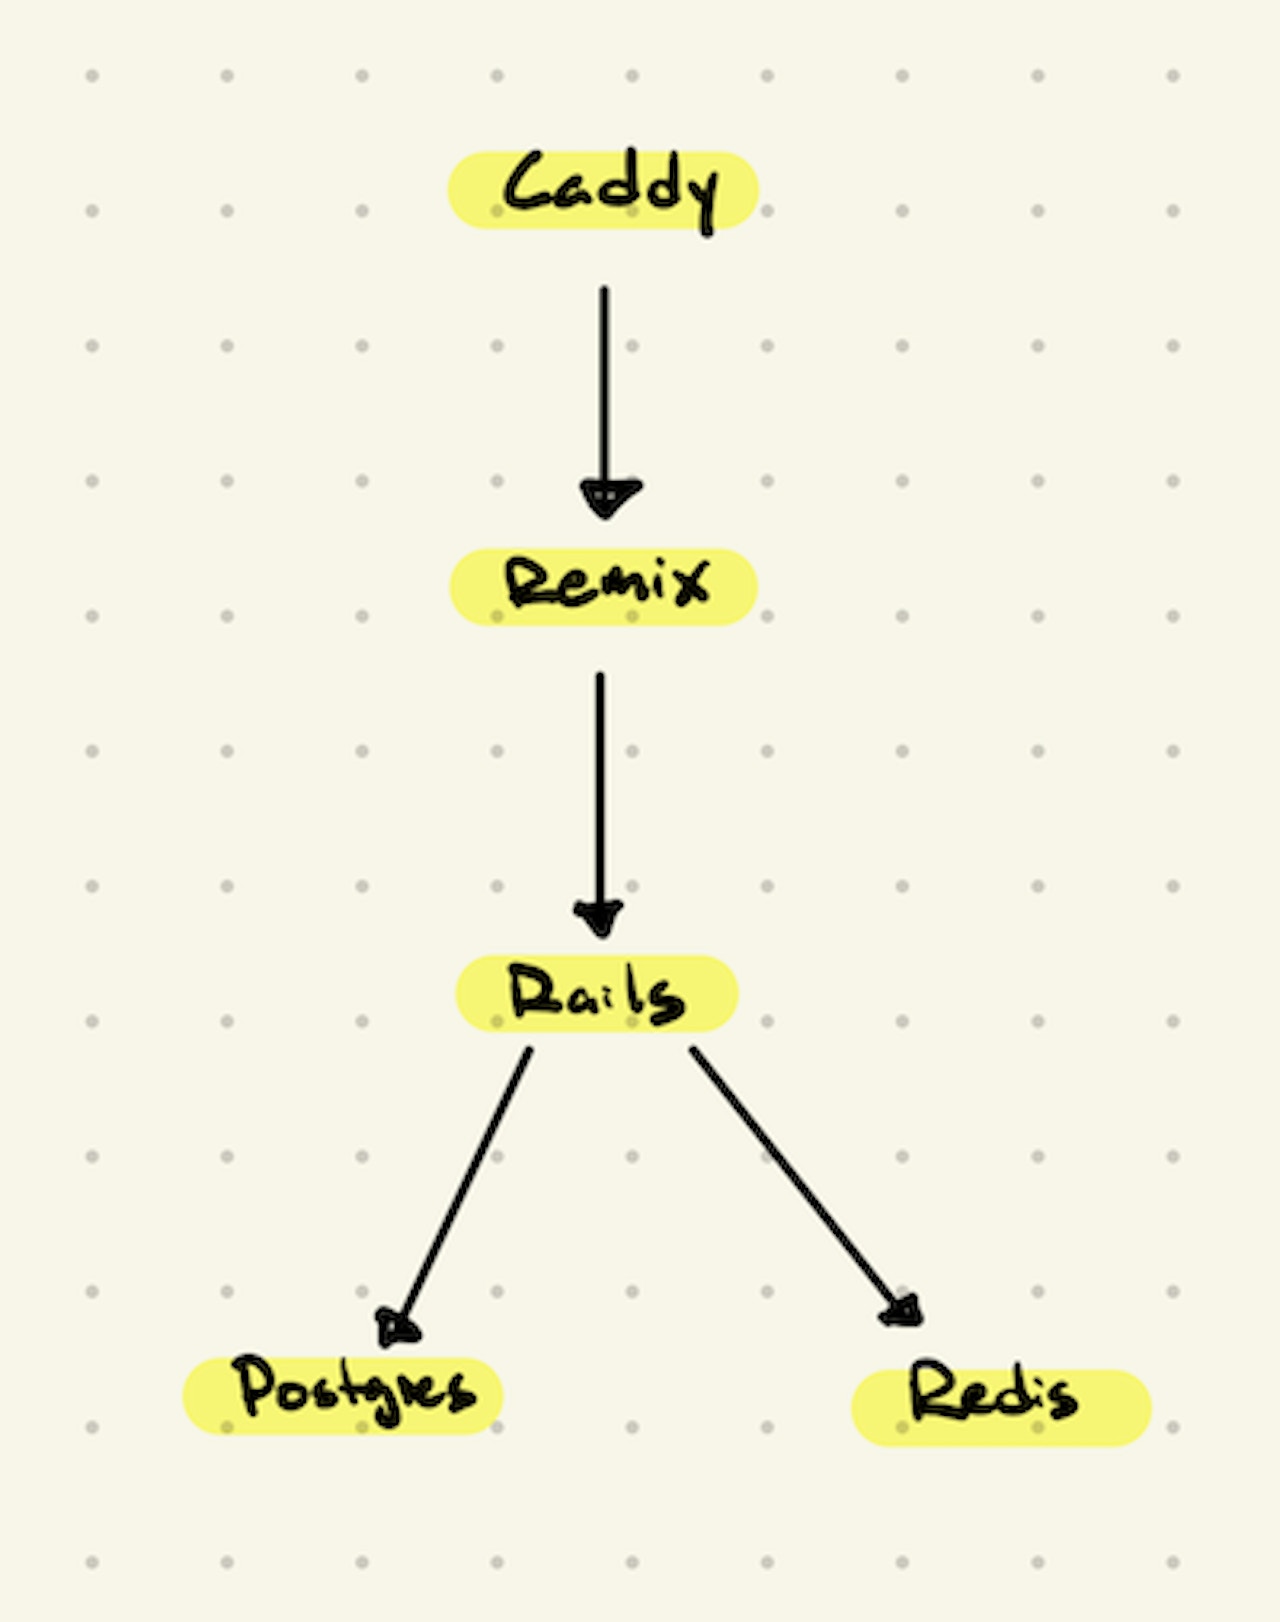 Caddy
Remix
Rails
Postgres
Redis